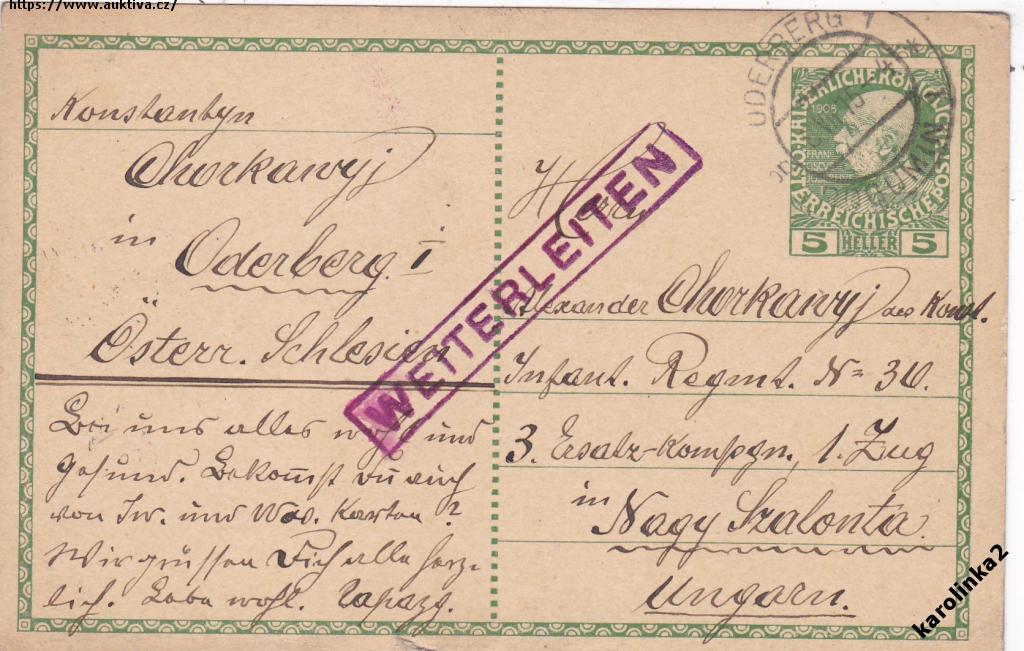 https://www.auktiva.cz/
Konstantyn
Chorkawyj
in
Oderberg I
Österr. Schlesien
Bei uns alles wohl und
gesund. Bekommst Du auch
von Iw. und Was. Karten?
Wir grüssen Dich alle herz-
lich. Lebe wohl.
ODERBERG 1
KAISERLICHE KÖNIGLICHE
ÖSTERREICHISCHE POST
1908
5 HELLER 5
WEITERLEITEN
Herrn
Alexander Chorkawyj des Konst.
Infant. Regmt. No 30.
3. Ersatz-Kompgn., 1. Zug
in
Nagy Szalonta
Ungarn.
karolinka2